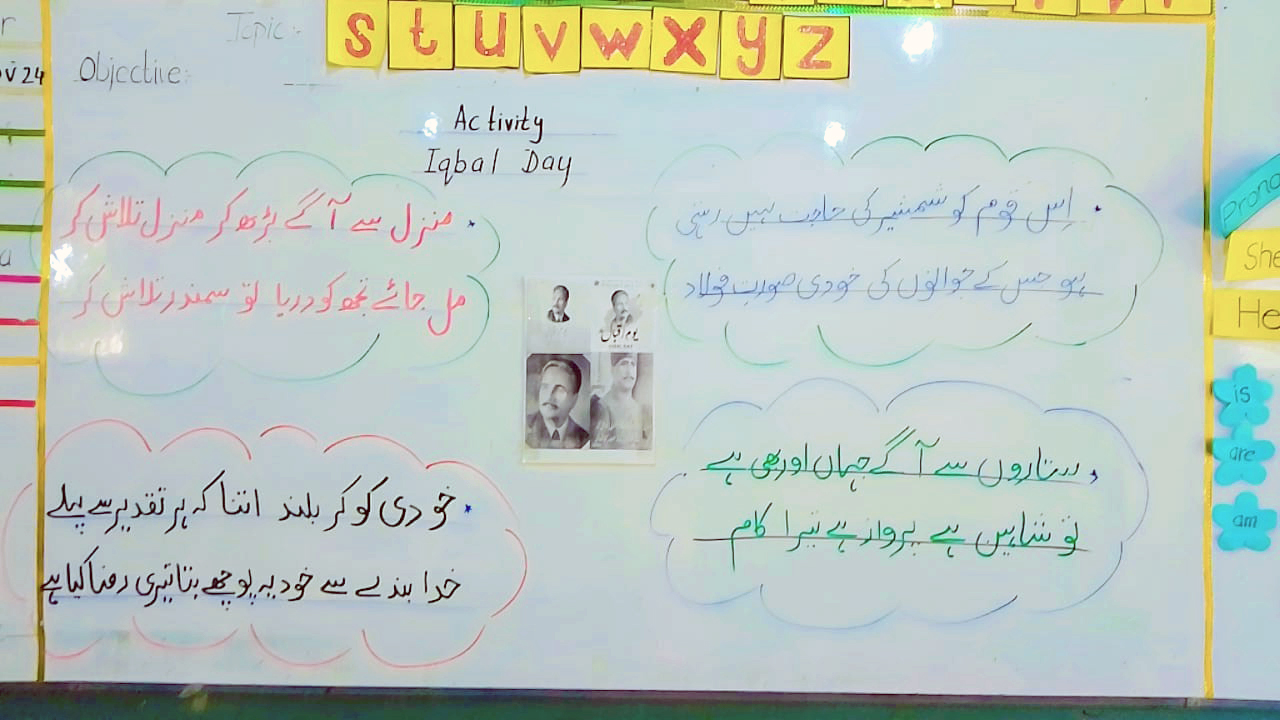 s t u v w x y z
Topic:-
Objective:-
24
Activity
Iqbal Day
منزل سے آگے بڑھ کر منزل تلاش کر
مل جائے تجھ کو دریا تو سمندر تلاش کر
اِس قوم کو شمشیر کی حاجت نہیں رہتی
ہو جس کے جوانوں کی خودی صورت فولاد
یوم اقبال
خودی کو کر بلند اتنا کہ ہر تقدیر سے پہلے
خدا بندے سے خود یہ پوچھے بتا تیری رضا کیا ہے
ستاروں سے آگے جہاں اور بھی ہے
تو شاہیں ہے پرواز ہے تیرا کام
Prono
She
He
is
are
am